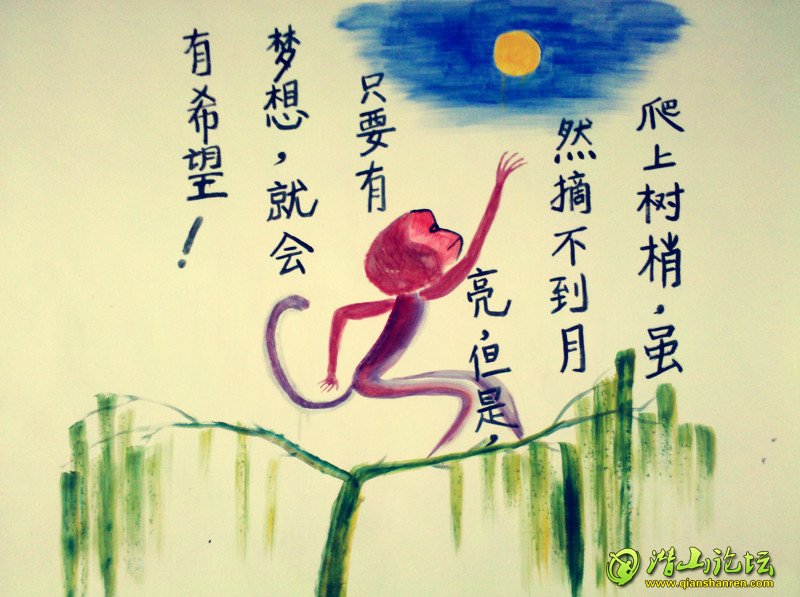 爬上树梢,虽
然摘不到月
亮,但是,
只要有
梦想,就会
有希望!
潜山论坛
www.qianshanren.com